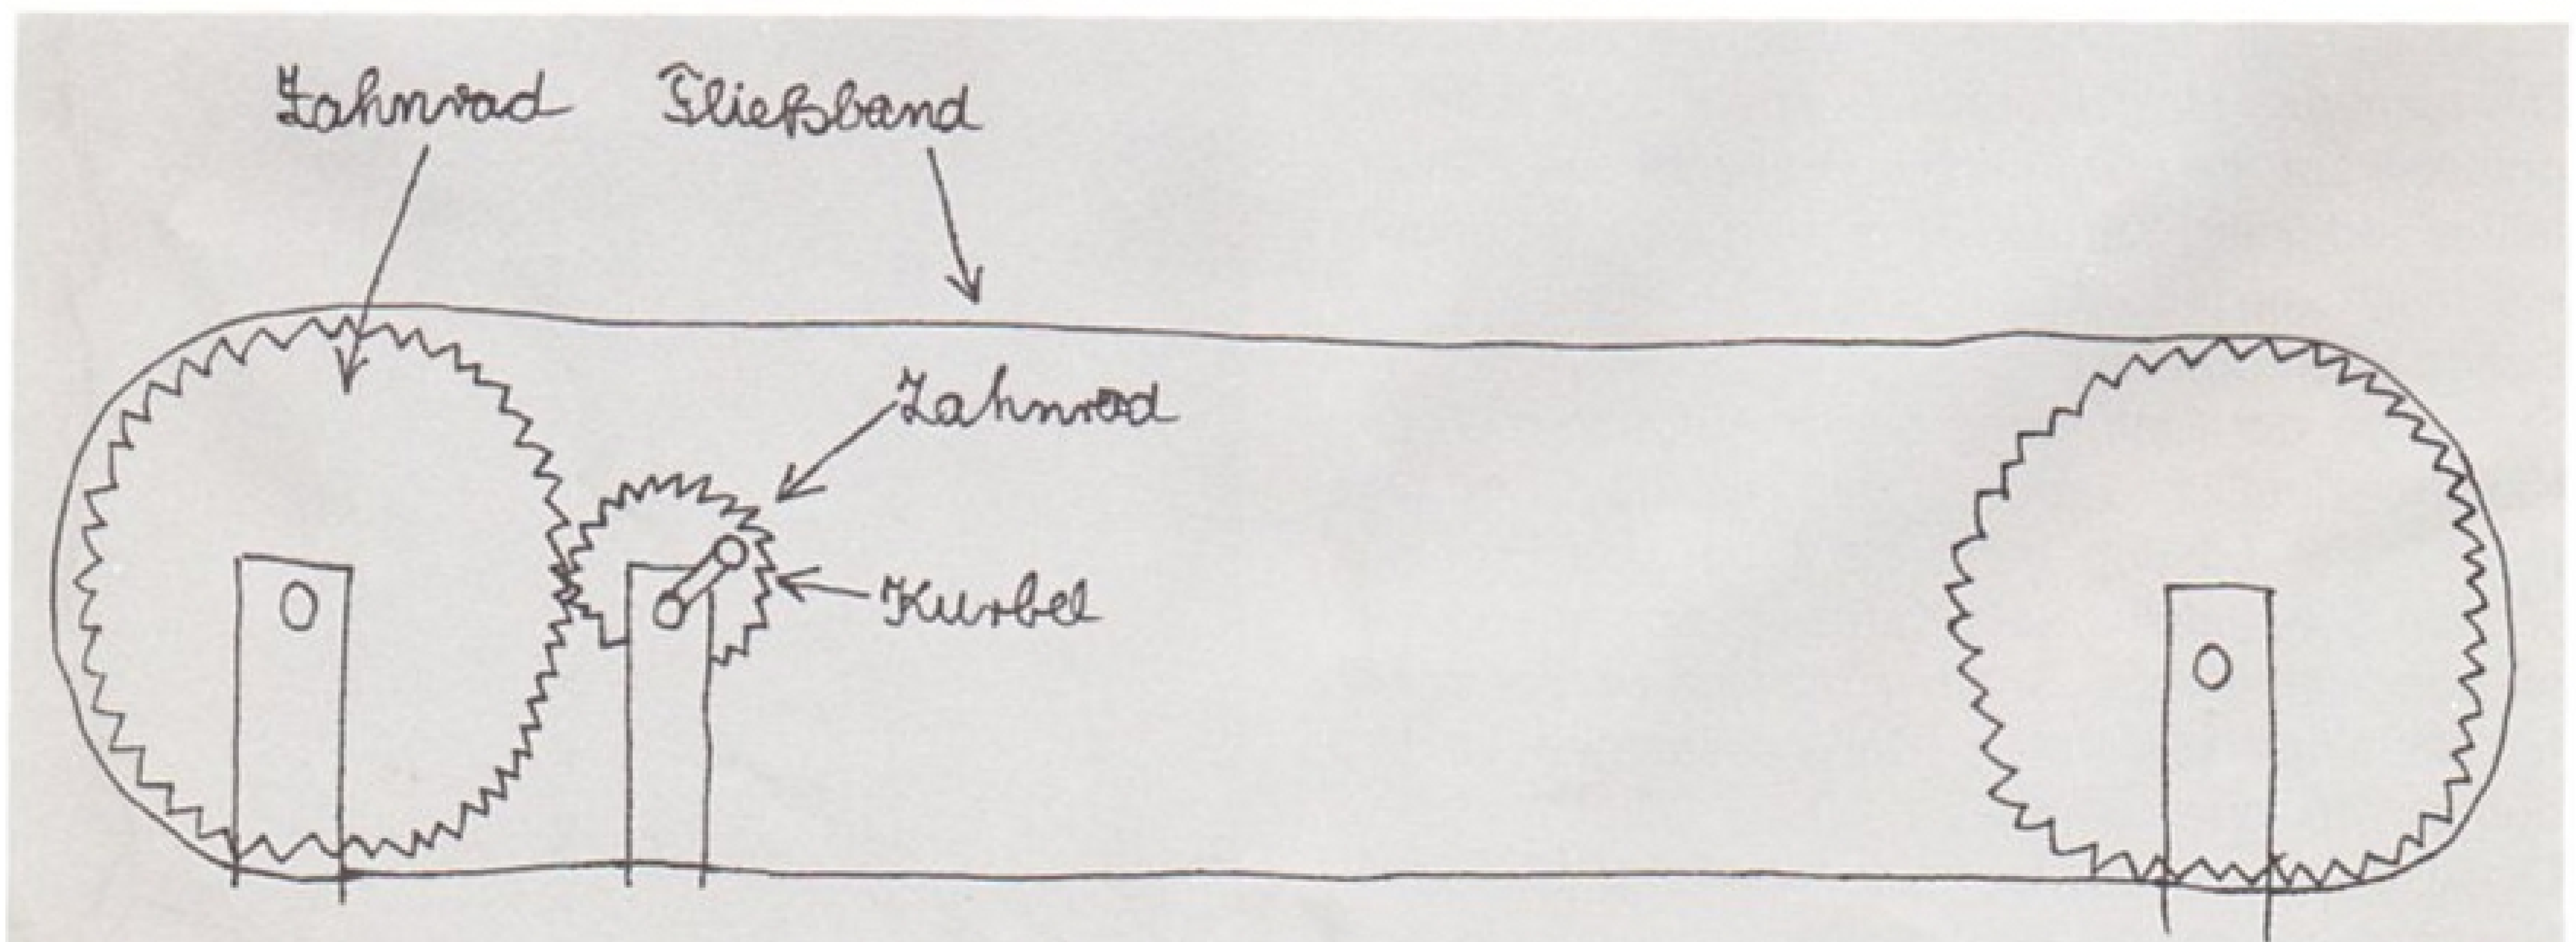 Zahnrad Fließband
Zahnrad
Kurbel